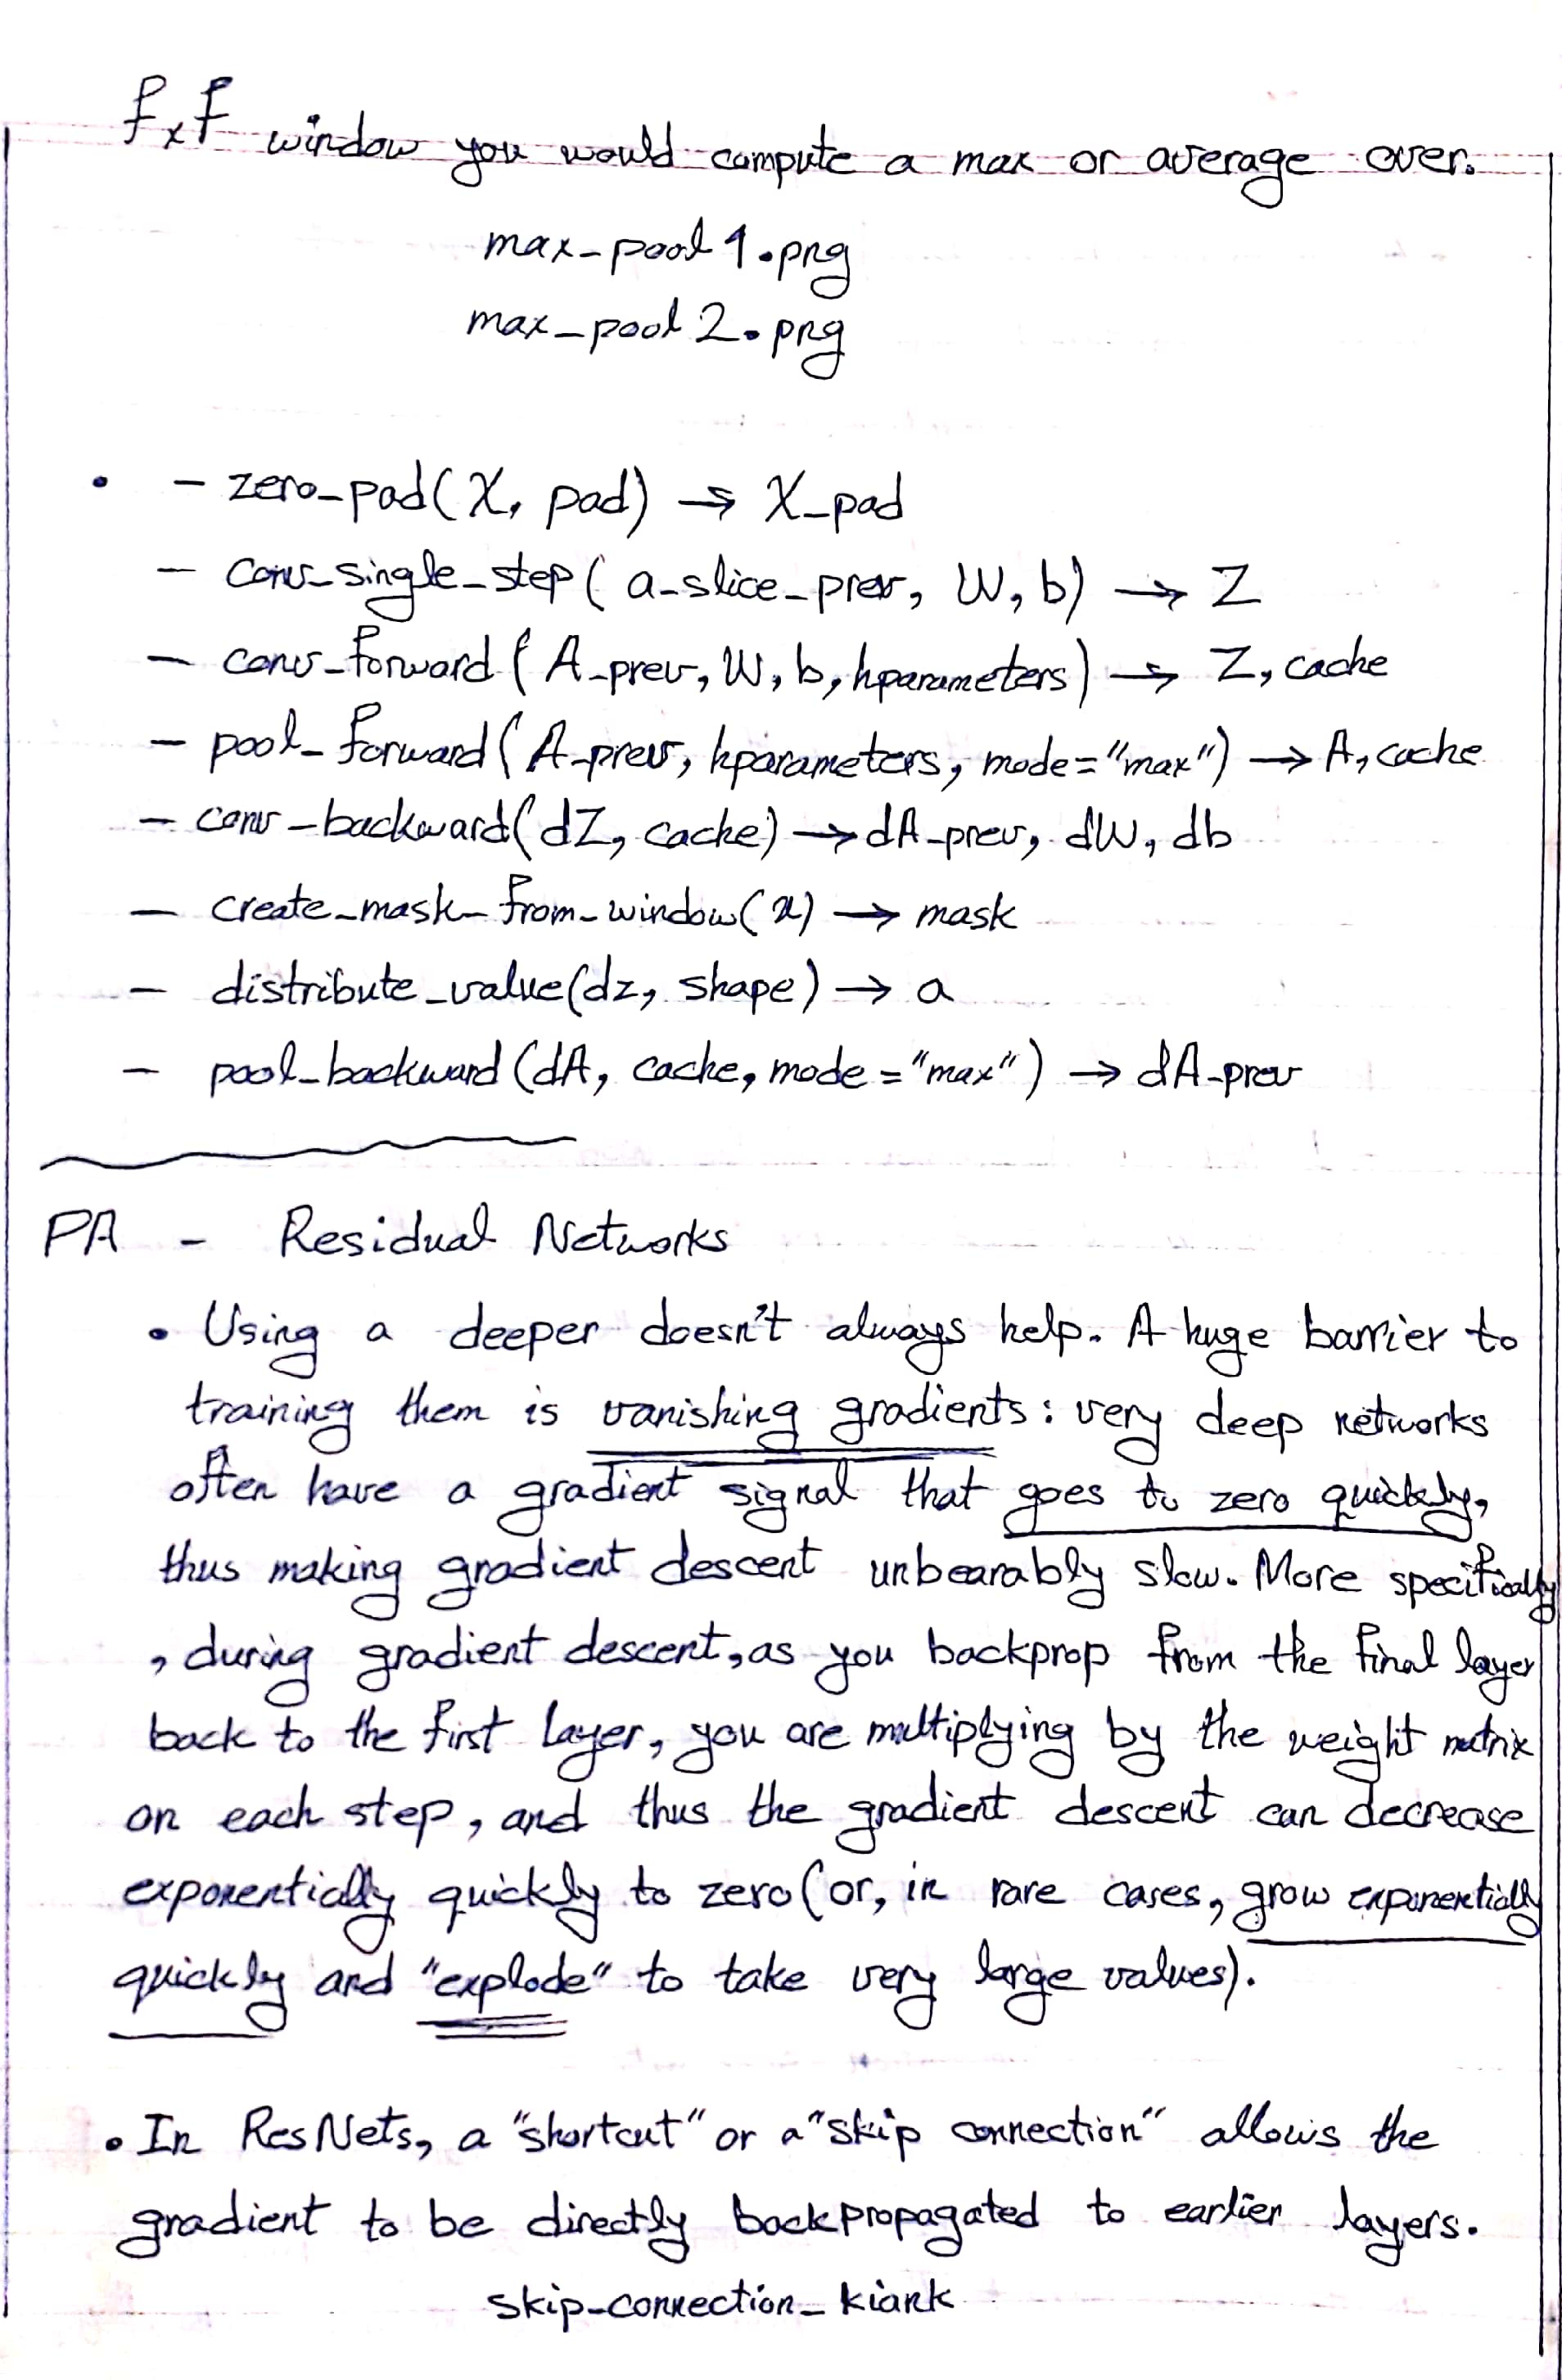 fxf window you would compute a max or average over.
max-pool1.png
max_pool2.png
• - zero_pad(X, pad) → X_pad
- conv_single_step(a_slice_prev, W, b) → Z
- conv_forward(A_prev, W, b, hparameters) → Z, cache
- pool_forward(A_prev, hparameters, mode="max") → A, cache
- conv_backward(dZ, cache) → dA_prev, dW, db
- create_mask_from_window(x) → mask
- distribute_value(dz, shape) → a
- pool_backward(dA, cache, mode="max") → dA_prev
PA - Residual Networks
• Using a deeper doesn't always help. A huge barrier to
training them is vanishing gradients: very deep networks
often have a gradient signal that goes to zero quickly,
thus making gradient descent unbearably slow. More specifically
, during gradient descent, as you backprop from the final layer
back to the first layer, you are multiplying by the weight matrix
on each step, and thus the gradient descent can decrease
exponentially quickly to zero (or, in rare cases, grow exponentially
quickly and "explode" to take very large values).
• In ResNets, a "shortcut" or a "skip connection" allows the
gradient to be directly backpropagated to earlier layers.
skip_connection_kiank